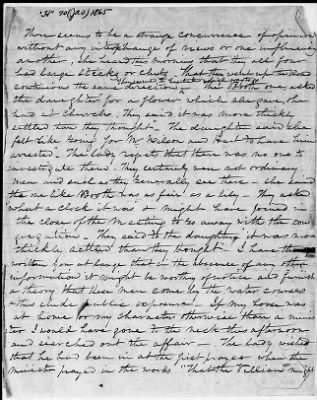 "H" 70 (JAO) 1865
There seems to be a strange concurrence of opinion
without any interchange of views or one influencing
another, she heard this morning that they all four
had large sticks or clubs. That they went up to
continuing the same direction — this Booth one asked
the daughter for a flower which she gave, she
had at Church. They said it was more thickly
settled than they thought. The daughter said she
felt like going for Mr Wilson and to have him
arrested. The lady regrets that there was no one to
investigate them. They certainly were not ordinary
men and such as they generally see here — she joined
the one like Booth was as fair as a lily — They asked
what o clock it was & might have joined in
the close of the Meeting to go away with the con-
gregation. They said to the daughter it was more
thickly settled than they thought. I have thus
written you at large that in the absence of any other
information it might be worthy of notice and furnish
a theory that these men come by the water courses
& thus elude public exposure. If my horse was
at home or my character otherwise than a minis-
ter I would have gone to the neck this afternoon
and searched out the affair — The lady wished
that he had been in at the first prayer when the
minister prayed in the words "That the Villain might